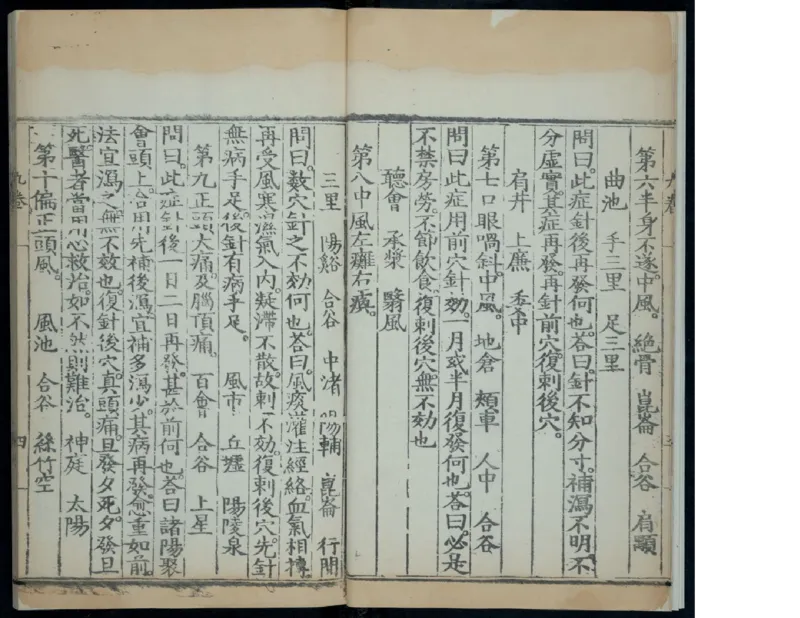 第六半身不遂中風。 絕骨 崑崙 合谷 肩髃
曲池 手三里 足三里
問曰。此症針後再發何也。荅曰。針不知分寸。補瀉不明。不
分虛實。其症再發。再針前穴。復刺後穴。
肩井 上廉 委中
第七口眼喎斜中風。 地倉 頰車 人中 合谷
問曰。此症用前穴針効。一月或半月復發何也。荅曰。必是
不禁房勞。不節飲食。復刺後穴。無不効也
聽會 承漿 翳風
第八中風左癱右瘓。
三里 陽谿 合谷 中渚 陽輔 崑崙 行間
問曰。數穴針之不効何也。荅曰。風痰灌注經絡。血氣相搏。
再受風寒濕氣入內。凝滯不散。故刺不効。復刺後穴。先針
無病手足。後針有病手足。 風市 丘墟 陽陵泉
第九正頭大痛及腦頂痛。 百會 合谷 上星
問曰。此症針後一日二日再發。甚於前何也。荅曰諸陽聚
會頭上。合用先補後瀉。宜補多瀉少。其病再發。愈重如前。
法宜瀉之。無不効也。復針後穴。真頭痛。旦發夕死。夕發旦
死。醫者當用心救治。如不然則難治。 神庭 太陽
第十偏正頭風。 風池 合谷 絲竹空
九卷
四